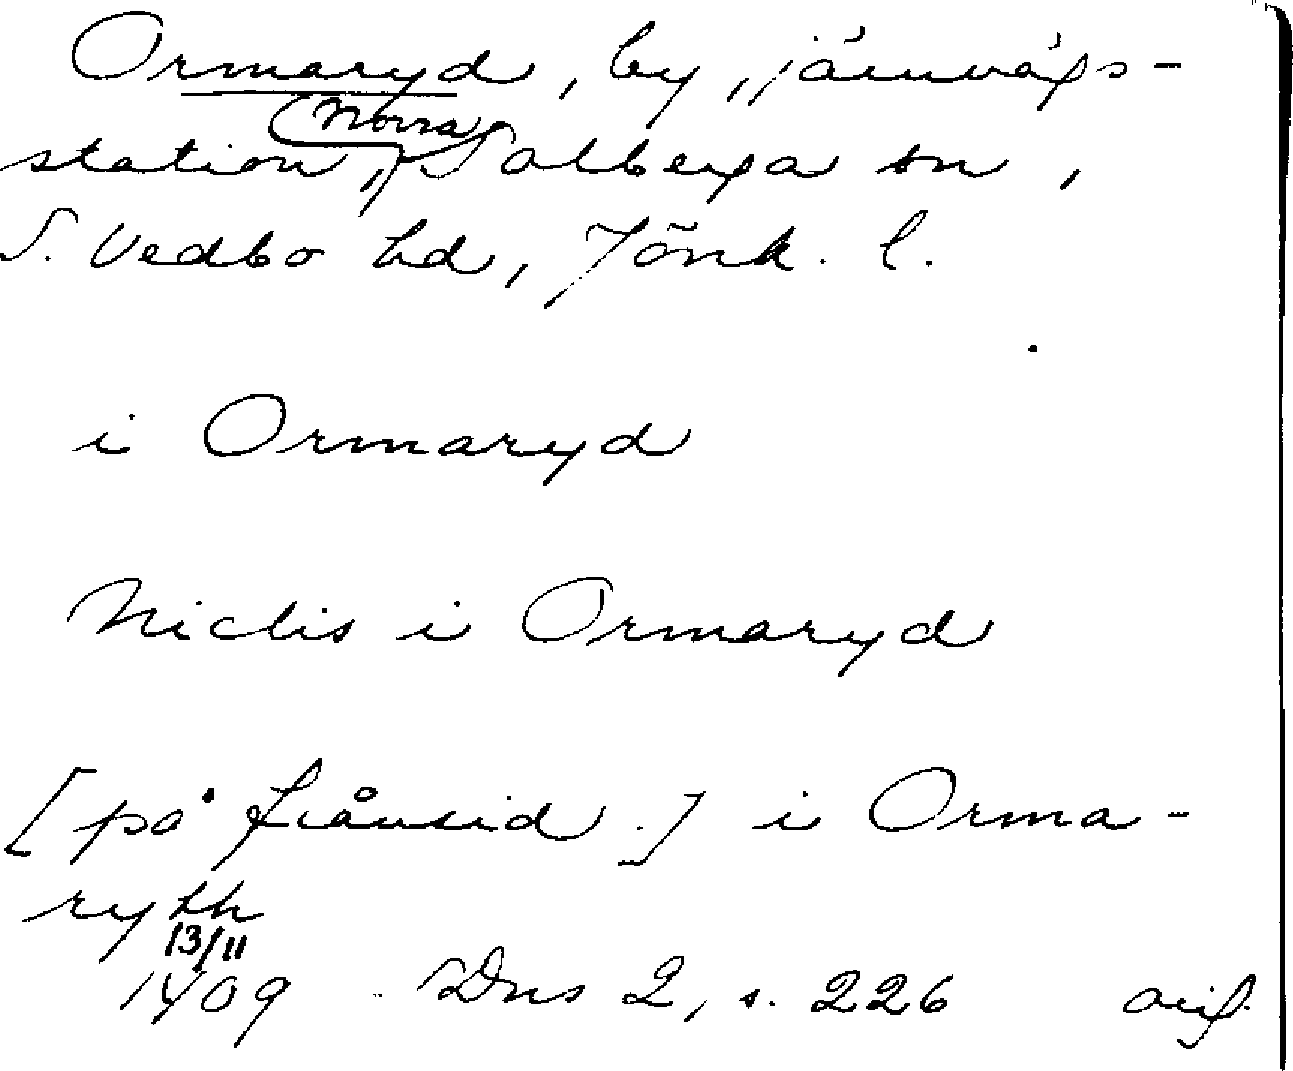 Ormaryd, by, järnvägs-
station, (Norra) Solberga sn,
S. Vedbo hd, Jönk. l.
i Ormaryd
Niclis i Ormaryd
[på frånsid.] i Orma-
ryth
13/11
1409 Dns 2, s. 226 orig.